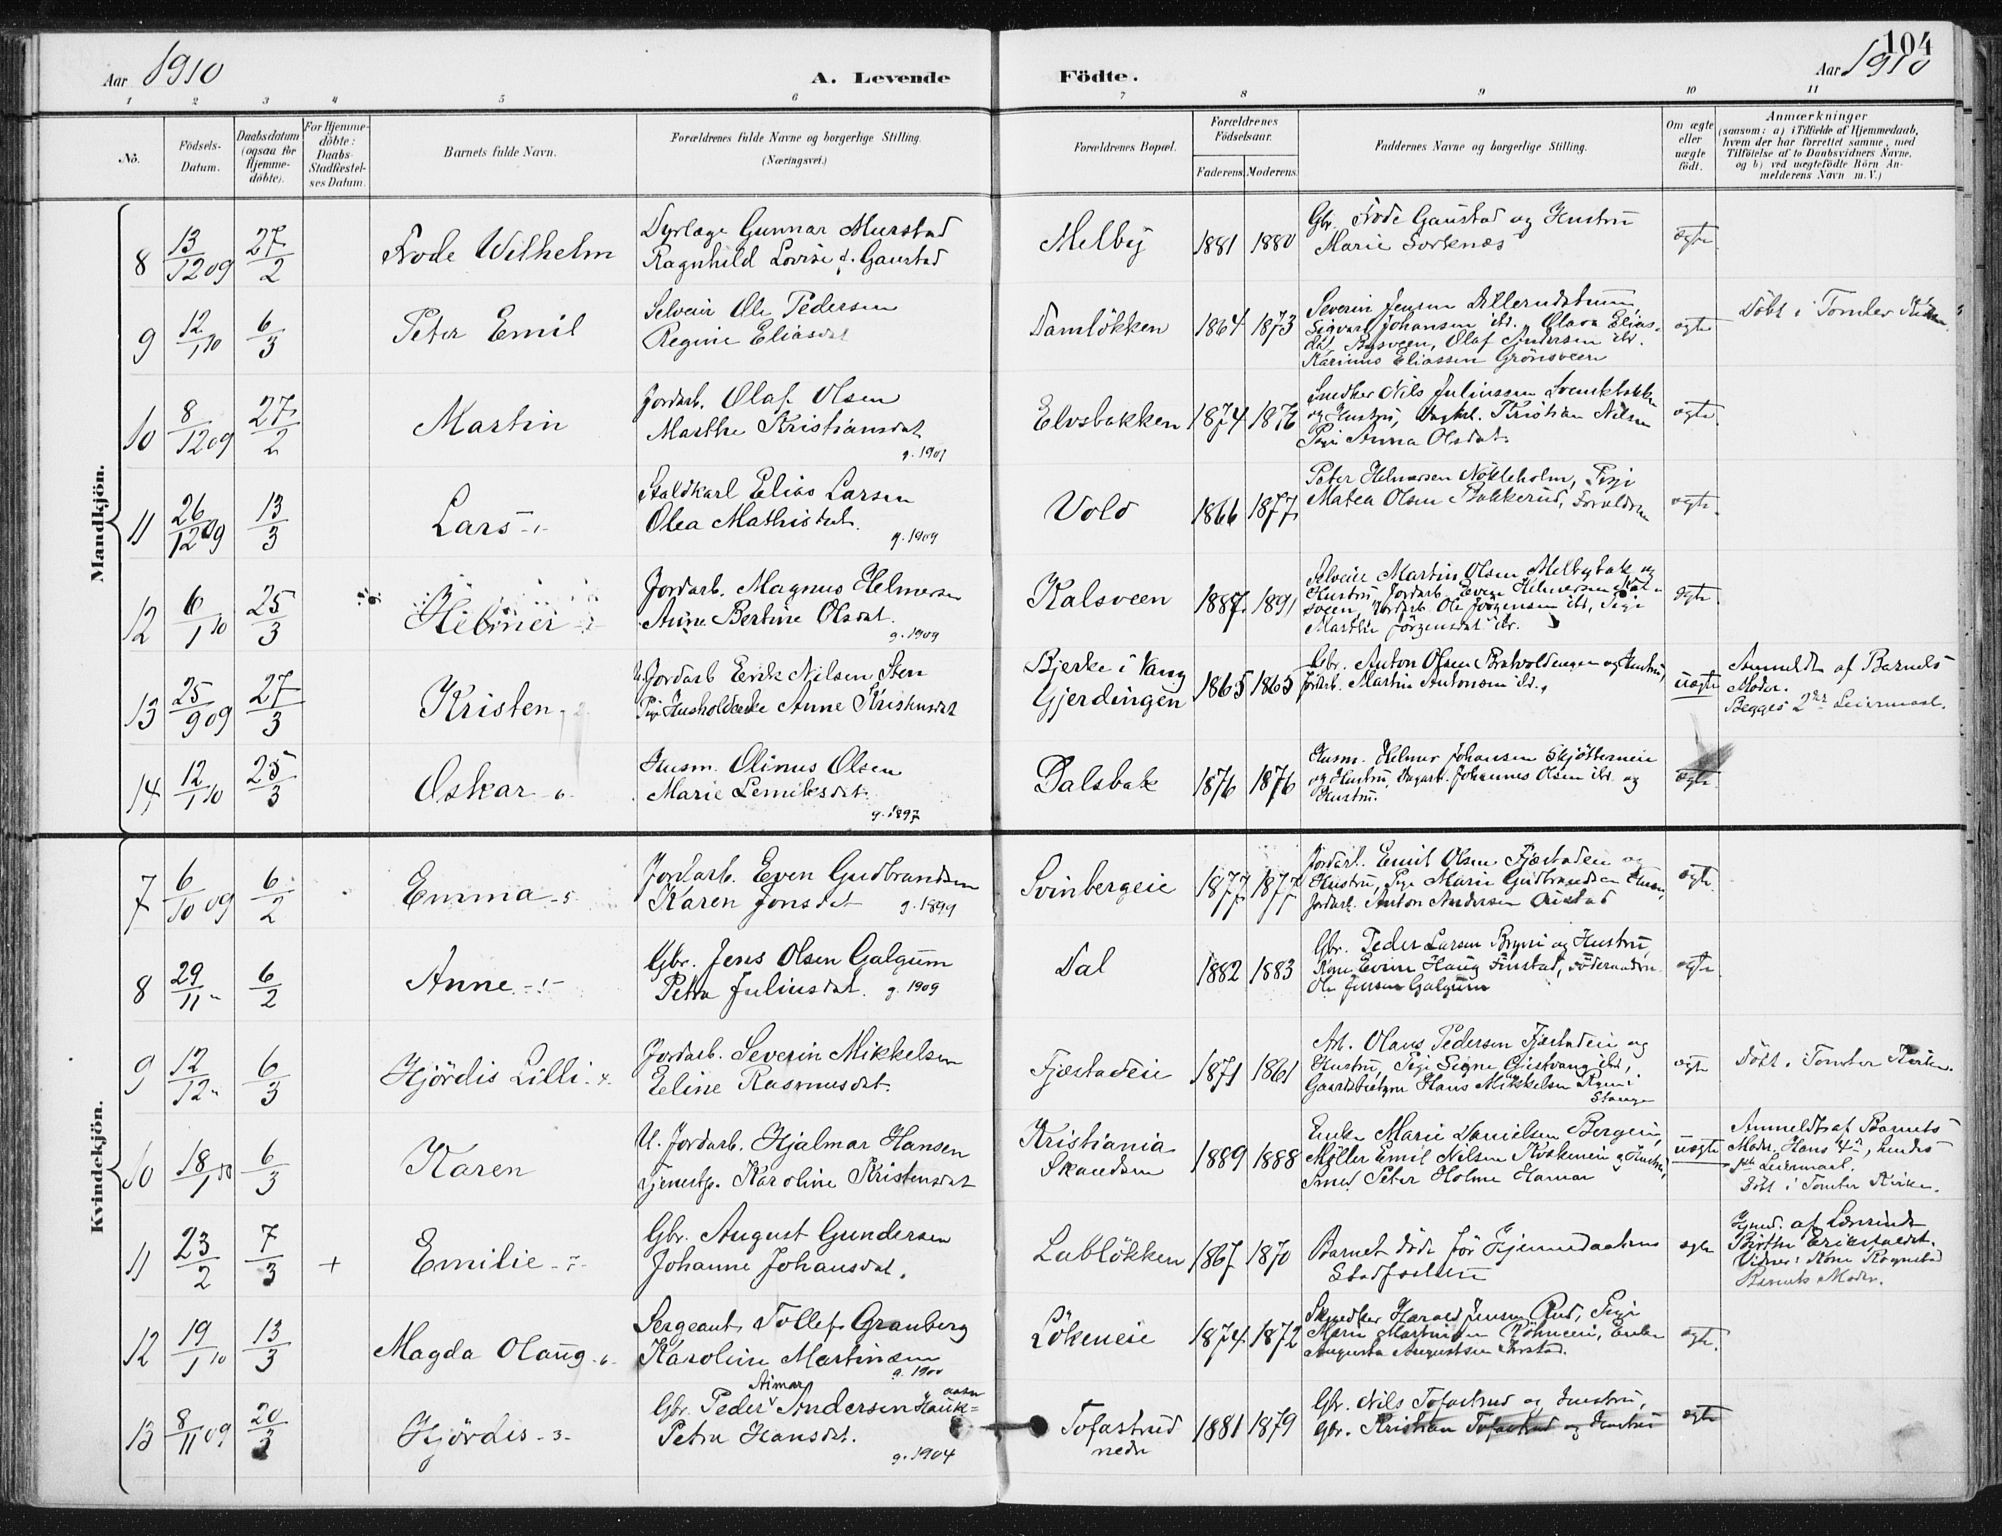 104
Aar 1910
A. Levende
Födte.
Aar 1910
1 2 3 4 5 6 7 8 9 10 11
No.
Födsels-Datum.
Daabsdatum (ogsaa for Hjemme-döbte).
For Hjemme-döbte: Daabs-Stadfæstel-ses Datum.
Barnets fulde Navn.
Forældrenes fulde Navne og borgerlige Stilling.
(Næringsvei.)
Forældrenes Bopæl.
Forældrenes Födselsaar.
Faderens. Moderens.
Faddernes Navne og borgerlige Stilling.
Om ægte eller uægte födt.
Anmærkninger
(saasom: a) i Tilfælde af Hjemmedaab, hvem der har forrettet samme, med Tilföielse af to Daabsvidners Navne, og b) ved uægtefödte Börn An-melderens Navn m. V.)
Mandkjön.
8 13/12 09 27/2 Frode Wilhelm
Dyrlæge Gunnar Murstad
Ragnhild Lovise f. Gaustad
Melby 1881 1880
Gbr. Frode Gaustad og Hustru
Marie Sorknæs
ægte
9 12/1 10 6/3 Peter Emil
Selveier Ole Pedersen
Regine Eliasdat
Damlökken 1864 1873
Severin Jensen
Sigvart Johansen ibd. Olava Elias-
dat, Bysveen, Olaf Andersen ibd.
Karinus Eliassen Grönsveen
ægte
Döbt i Tomter Kirke.
10 8/12 09 27/2 Martin
Jordarb. Olaf Olsen
Marthe Kristiansdat
g. 1901
Elvsbakken 1874 1876
Snedker Nils Juliussen
og Hustru, Kristian Nilsen
Pige Anna Olsdat.
ægte.
11 26/12 09 13/3 Lars -1-
Staldkarl Elias Larsen
Olea Mathisdat.
g. 1909
Vold 1866 1877
Peter Helmersen Nötleholm, Pige
Matea Olsen Bakkerud, Forældrene
ægte.
12 6/1 10 25/3 Helmer
Jordarb. Magnus Helmersen
Anne Bertine Olsdat.
g. 1909
Kalsveen 1887 1891
Selveier Martin Olsen Melbybak og
Hustru, Jordarb. Even Helmersen Kal-
sveen, Jordarb. Ole Jörgensen ibd, Pige
Marthe Jörgensdat ibd.
ægte.
13 25/9 09 27/3 Kristen -2-
U. Jordarb Erik Nilsen Sten
Pige Husholderske Anne Kristensdat
Bjerke i Vang
Gjerdingen 1865 1865
Gbr. Anton Olsen Bratvoldengen og Hustru,
Jordarb. Martin Antonsen ibd.
uægte
Anmeldt af Barnets
Moder.
Begges 2det Leiermaal.
14 12/1 10 25/3 Oskar -6-
Husm. Olinus Olsen
Marie Lemiksdat.
g. 1897
Dalsbak 1876 1876
Husm. Helmer Johansen
og Hustru, Dagarb. Johannes Olsen ibd. og
Hustru.
ægte
Kvindekjön.
7 6/10 09 6/2 Emma -5-
Jordarb. Even Gudbrandsen
Karen Jonsdat g. 1899
Svinbergeie 1877 1877
Jordarb. Emil Olsen Fjæstadeie og
Hustru, Pige Marie Gudbrandsen
Jordarb. Anton Andersen
ægte.
8 29/11 - 6/2 Anne -1-
Gbr. Jens Olsen Galgum
Petra Juliusdat. g. 1909
Dal 1882 1883
Gbr. Peder Larsen Bryni og Hustru,
Kone Evine Haug Finstad,
Ole Jensen Galgum
ægte
9 12/12 - 6/3 Hjördis Lilli
Jordarb. Severin Mikkelsen
Eline Rasmusdat.
Fjæstadeie 1871 1861
Arb. Olaus Pedersen Fjæstadeie og
Hustru, Pige Signe Gistvang ibd,
Gaardsbestyrer Hans Mikkelsen Ryen i
Stange
ægte
Döbt i Tomter Kirke.
10 18/1 10 6/3 Karen
U. Jordarb. Hjalmar Hansen
Tjenestp. Karoline Kristensdat
Kristiania
Skandsen 1889 1888
Enke Marie Danielsen Bergeie,
Möller Emil Nilsen Kvækeneie og Hustru,
Smed Peter Holme Hamar
uægte
Anmeldt af Barnets
Moder. Hans 4de, hendes
1ste Leiermaal.
Döbt i Tomter Kirke.
11 23/2 7/3 + Emilie -7-
Gbr. August Gundersen
Johanne Johansdat.
Labløkken 1867 1870
Barnet döde för Hjemmedaabens
Stadfæstelse
ægte
Hjmd. af Lærerinde
Birthe
Vidner: Kone Rognstad
Barnets Moder.
12 19/1 10 13/3 Magda Olaug -6-
Sergeant Tollef Granberg
Karoline Martinsen
g. 1900
Lökeneie 1874 1872
Snedker Harald Jensen Rud, Pige
Marie Martinsen, Enke
Augusta Augustsen
ægte.
13 8/11 09 20/3 Hjördis -3-
Gbr. Peder Aimar Andersen Hauk-
aasen
Petra Hansdat.
g. 1904
Tofastrud
nedre 1881 1879
Gbr. Nils Tofastrud og Hustru,
Gbr. Kristian Tofastrud og Hustru
ægte